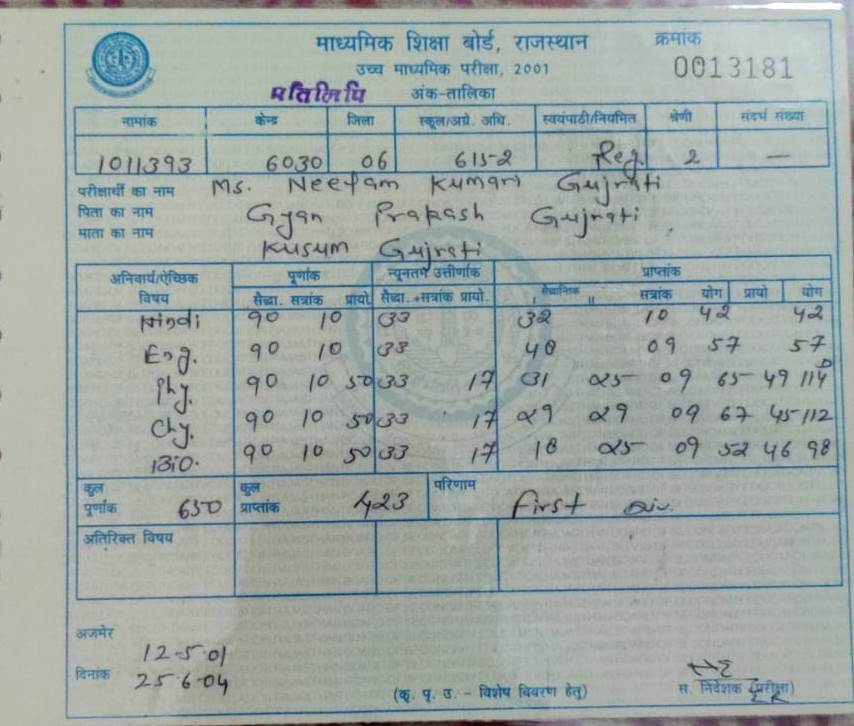 माध्यमिक शिक्षा बोर्ड, राजस्थान क्रमांक
उच्च माध्यमिक परीक्षा, 2001 0013181
प्रतिलिपि अंक-तालिका
नामांक केन्द्र जिला स्कूल/अग्रे. अधि. स्वयंपाठी/नियमित श्रेणी संदर्भ संख्या
1011393 6030 06 615-2 Reg. 2 —
परीक्षार्थी का नाम Ms. Neelam Kumari Gujrati
पिता का नाम Gyan Prakash Gujrati
माता का नाम Kusum Gujrati
अनिवार्य/ऐच्छिक पूर्णांक न्यूनतम उत्तीर्णांक प्राप्तांक
विषय सैद्धा. सत्रांक प्रायो. सैद्धा. +सत्रांक प्रायो. I सैद्धान्तिक II सत्रांक योग प्रायो योग
Hindi 90 10 33 32 10 42 42
Eng. 90 10 33 48 09 57 57
Phy. 90 10 50 33 17 31 25 09 65 49 114 D
Chy. 90 10 50 33 17 29 29 09 67 45 112
Bio. 90 10 50 33 17 18 25 09 52 46 98
कुल कुल परिणाम
पूर्णांक 650 प्राप्तांक 423 First Div.
अतिरिक्त विषय
अजमेर
12-5-01
दिनांक 25-6-04
(कृ. पृ. उ. - विशेष विवरण हेतु) स. निदेशक (परीक्षा)